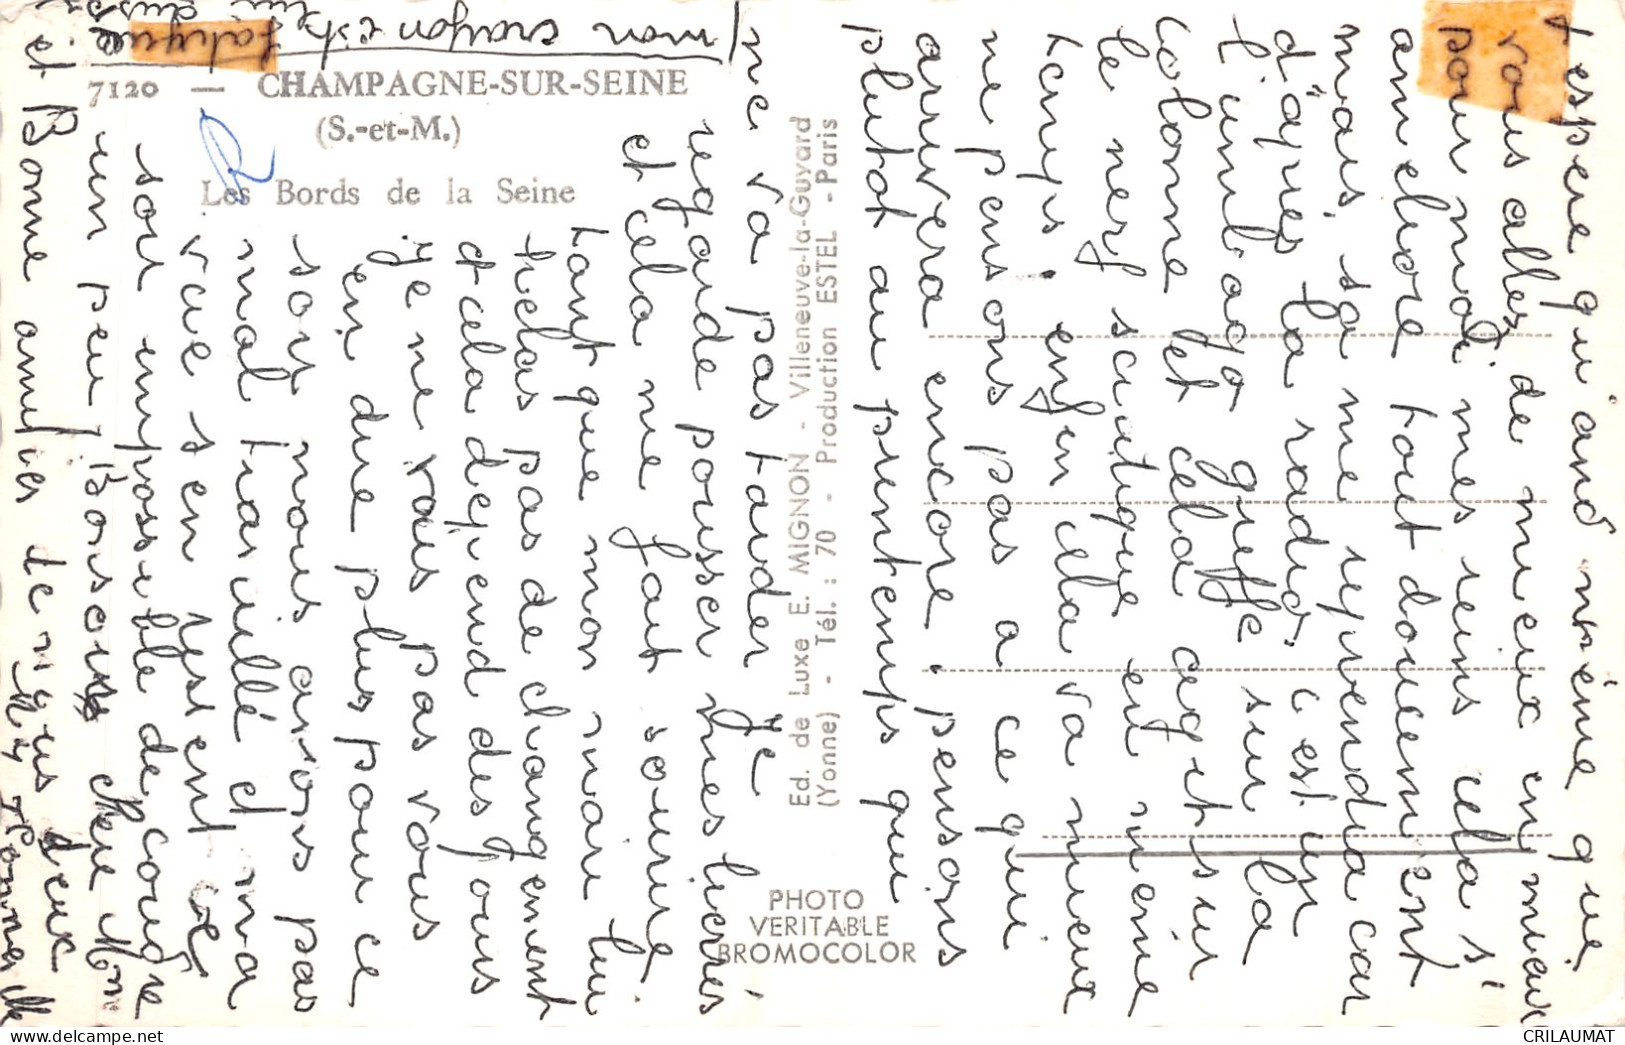 7120 — CHAMPAGNE-SUR-SEINE
(S.-et-M.)
Les Bords de la Seine
Ed. de Luxe E. MIGNON - Villeneuve-la-Guyard
(Yonne) - Tél. : 70 - Production ESTEL - Paris
PHOTO
VERITABLE
BROMOCOLOR
J'espere qu'and même que
vous allez de mieux en mieux
pour moi mes reins cela s'
ameliore tout doucement
mais sa me reprendra car
d'apres la radio c'est un
l'umbago greffe sur la
colonne et cela agit sur
le nerf sciatique en même
temps. enfin cela va mieux
ne pensons pas a ce qui
arrivera encore. pensons
plutot au printemps qui
ne va pas tarder je
regarde pousser mes
et cela me fait sourire
tant que mon mari lui
helas pas de changement
et cela depend des jours
je ne vais pas vous
en dire plus pour ce
soir nous avons pas
mal travaillé et ma
vue s'en ressent ce
soir impossible de coudre
un peu, Bonsoir chere Mme
et Bonne amities de nous deux
mon crayon est fatigué
lui aussi
CRILAUMAT